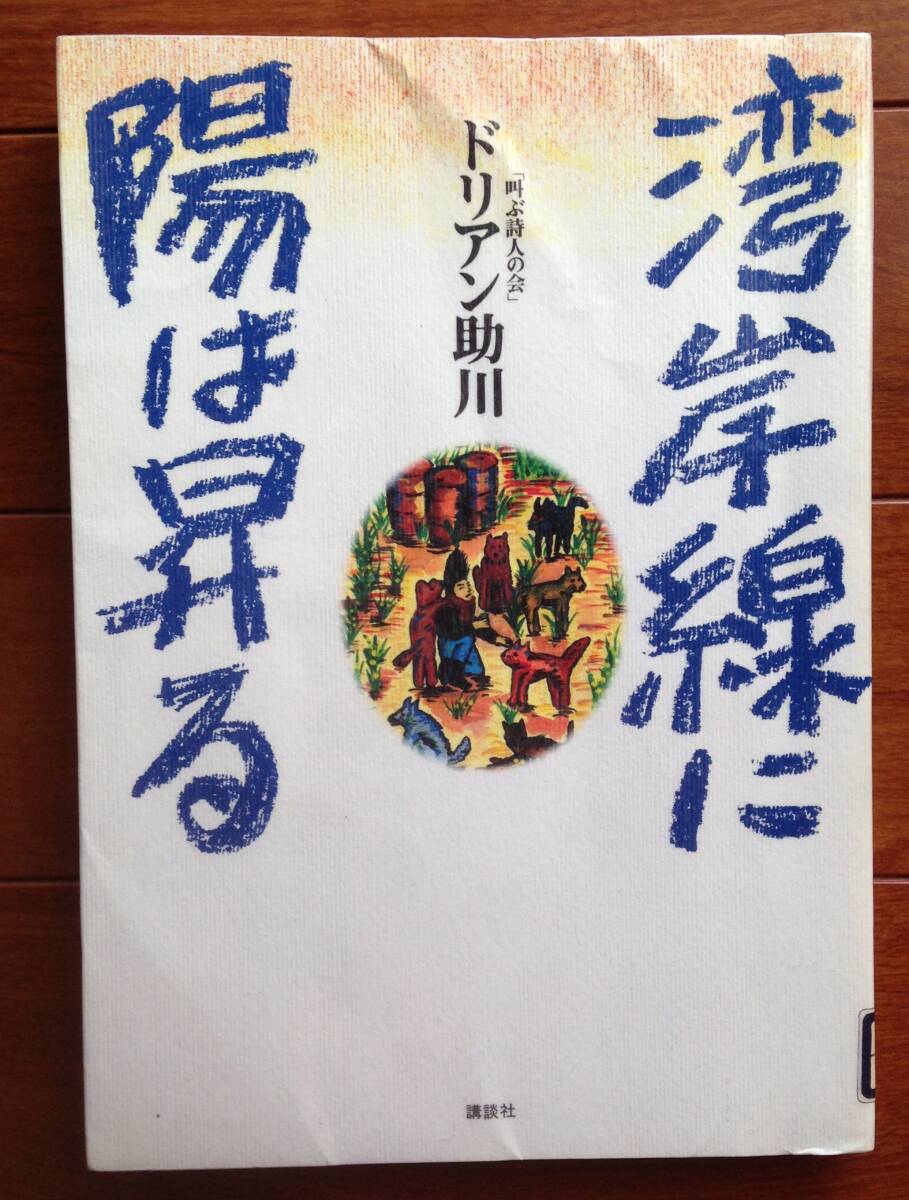 湾岸線に
陽は昇る
「叫ぶ詩人の会」
ドリアン助川
講談社